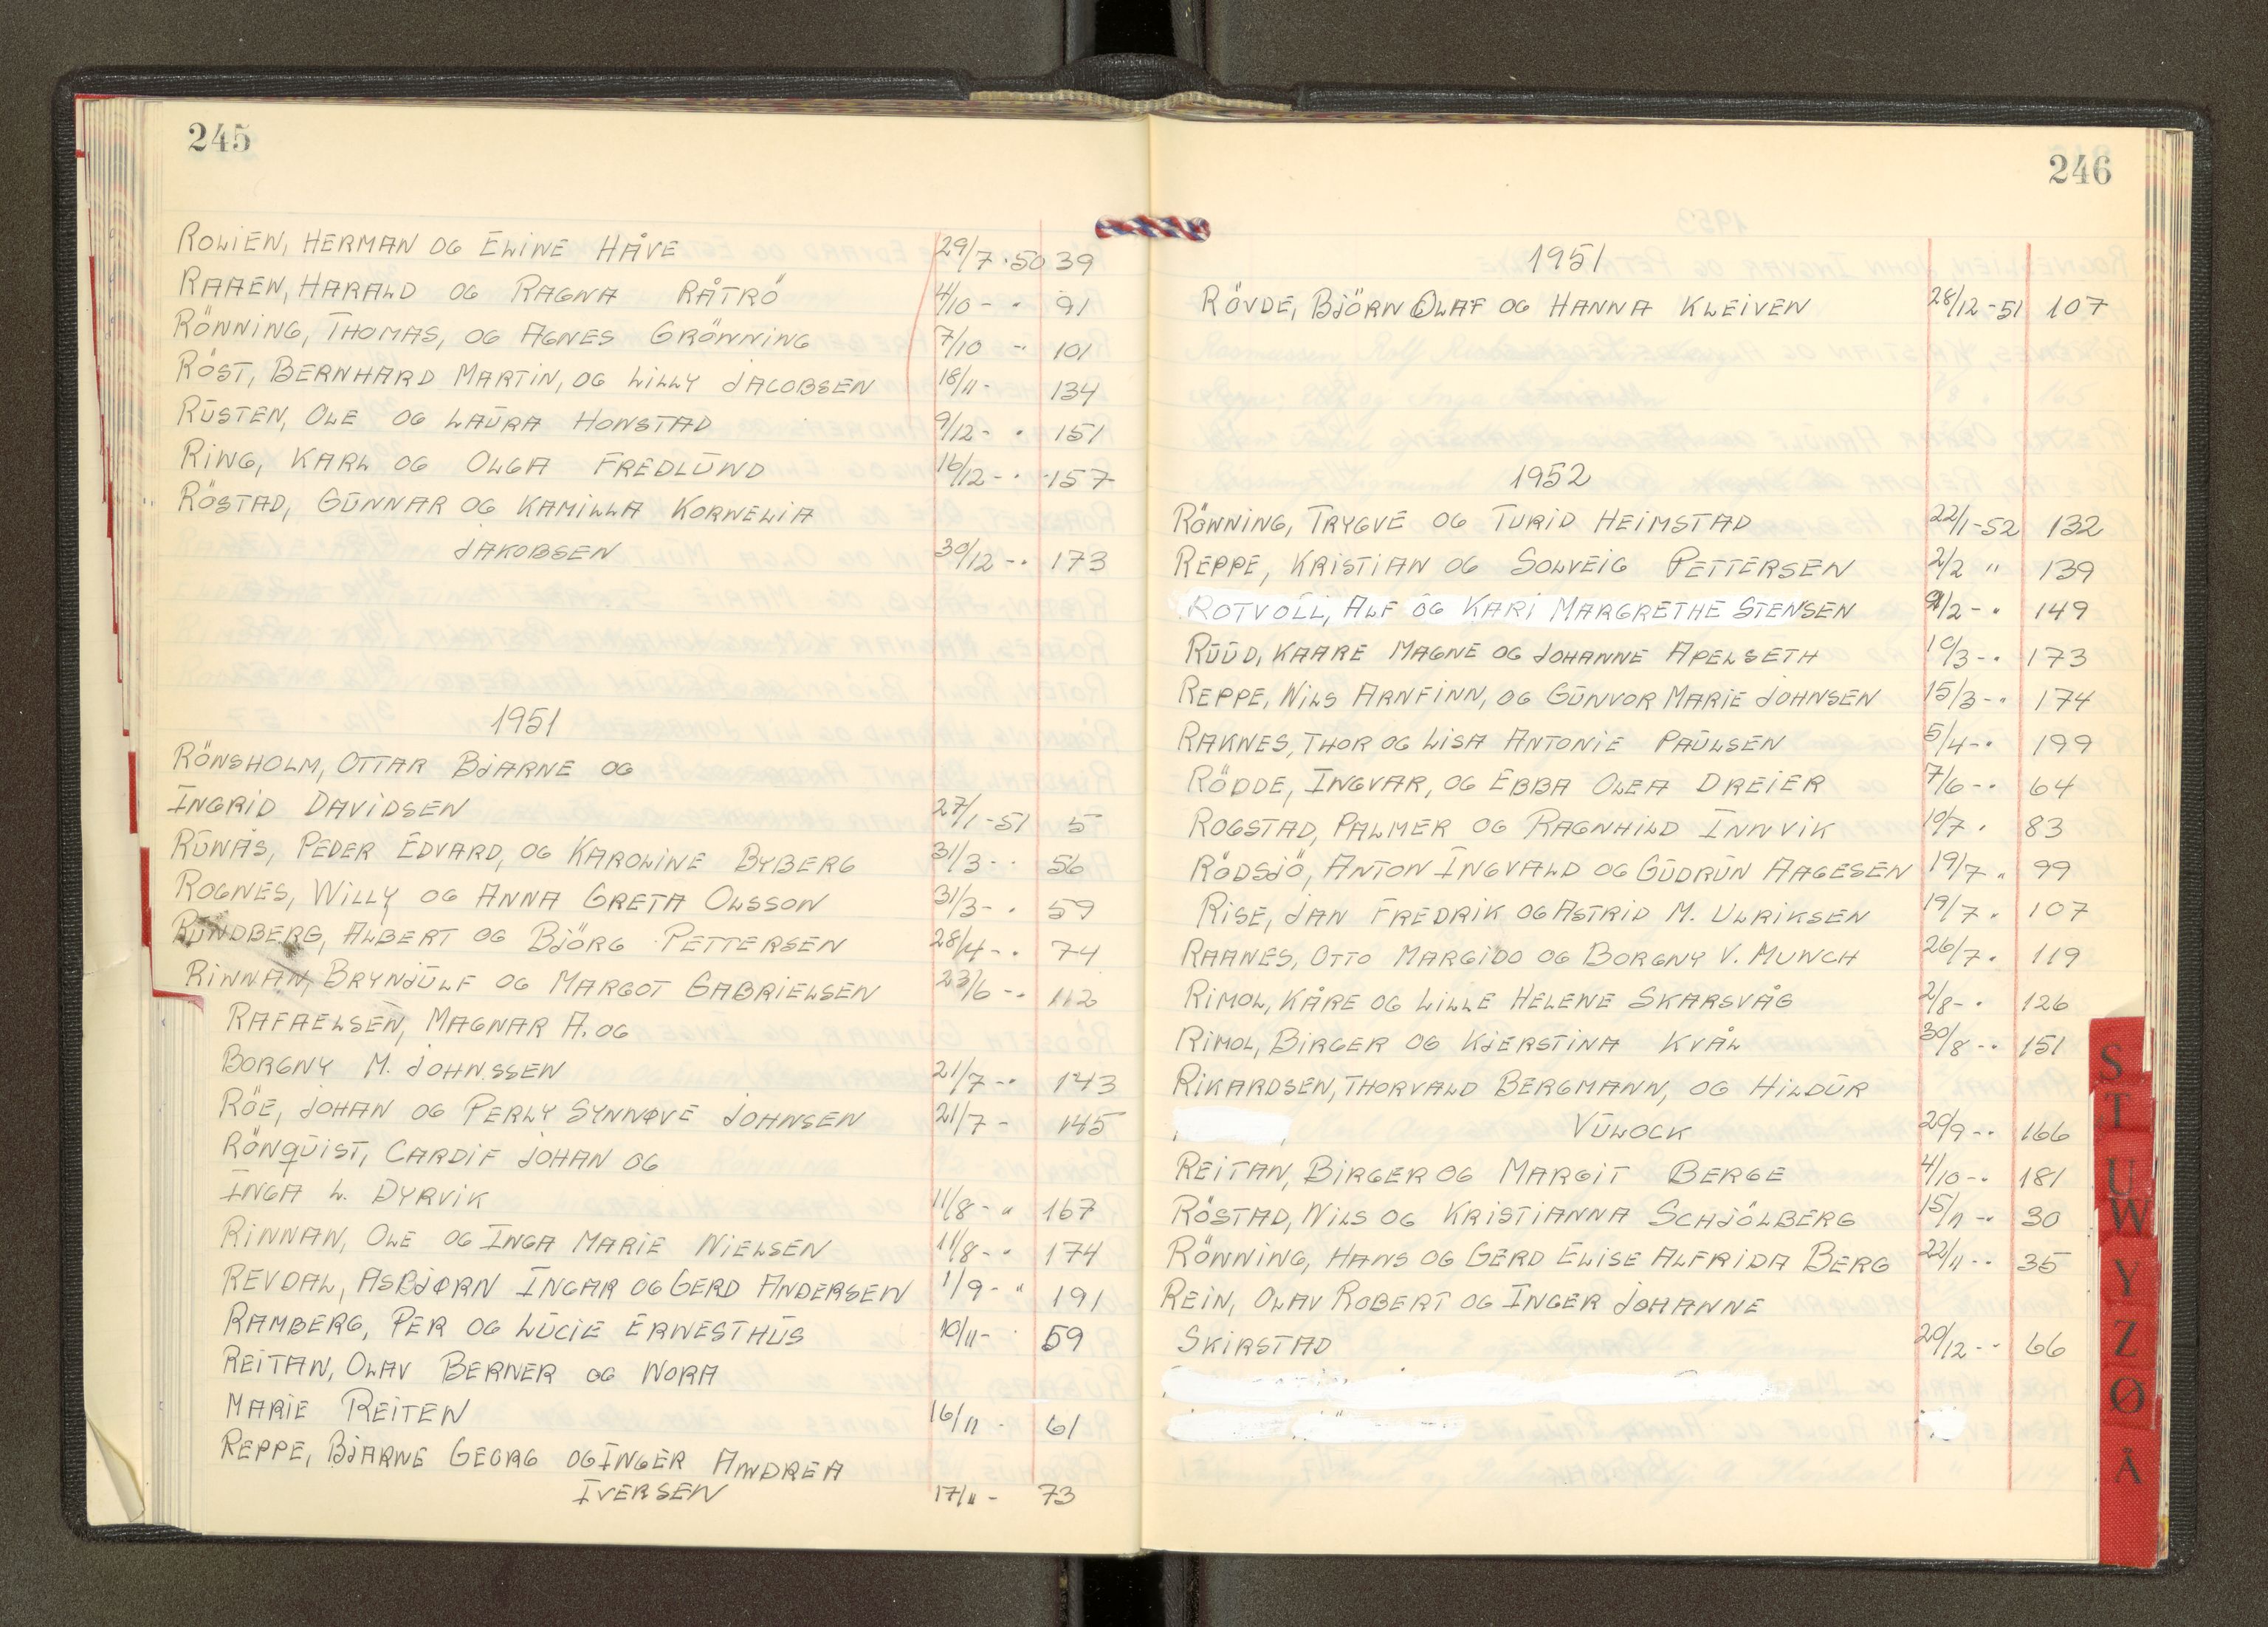 245
ROLIEN, HERMAN OG ELINE HÅVE 29/7 · 50 39
RAAEN, HARALD OG RAGNA RÅTRÖ 4/10 - " 91
RÖNNING, THOMAS, OG AGNES GRÖNNING 7/10 - 101
RÖST, BERNHARD MARTIN, OG LILLY JACOBSEN 18/11 - 134
RŪSTEN, OLE OG LAŪRA HONSTAD 9/12 - " 151
RING, KARL OG OLGA FREDLŪND 16/12 - " 157
RÖSTAD, GŪNNAR OG KAMILLA KORNELIA
JAKOBSEN 30/12 - " 173
1951
RÖNSHOLM, OTTAR BJARNE OG
INGRID DAVIDSEN 27/1 - 51 5
RŪNÅS, PEDER EDVARD, OG KAROLINE BYBERG 31/3 - " 56
ROGNES, WILLY OG ANNA GRETA OLSSON 31/3 - " 59
RŪNDBERG, ALBERT OG BJÖRG PETTERSEN 28/4 - " 74
RINNAN, BRYNJŪLF OG MARGOT GABRIELSEN 23/6 - " 112
RAFAELSEN, MAGNAR A. OG
BORGNY M. JOHNSSEN 21/7 - " 143
RÖE, JOHAN OG PERLY SYNNØVE JOHNSEN 21/7 - 145
RÖNQŪIST, CARDIF JOHAN OG
INGA L. DYRVIK 11/8 - " 167
RINNAN, OLE OG INGA MARIE NIELSEN 11/8 - " 174
REVDAL, ASBJØRN INGAR OG GERD ANDERSEN 1/9 - " 191
RAMBERG, PER OG LŪCIE ERNESTHŪS 10/11 - 59
REITAN, OLAV BERNER OG NORA
MARIE REITEN 16/11 - 61
REPPE, BJARNE GEORG OG INGER ANDREA
IVERSEN 17/11 - 73
246
1951
RÖVDE, BJÖRN OLAF OG HANNA KLEIVEN 28/12 - 51 107
1952
RÖNNING, TRYGVE OG TURID HEIMSTAD 22/1 - 52 132
REPPE, KRISTIAN OG SOLVEIG PETTERSEN 2/2 " 139
ROTVOLL, ALF OG KARI MARGRETHE STENSEN 9/2 - " 149
RŪŪD, KAARE MAGNE OG JOHANNE APELSETH 10/3 - " 173
REPPE, NILS ARNFINN, OG GŪNVOR MARIE JOHNSEN 15/3 - " 174
RAKNES, THOR OG LISA ANTONIE PAŪLSEN 5/4 - " 199
RÖDDE, INGVAR, OG EBBA OLEA DREIER 7/6 - " 64
ROGSTAD, PALMER OG RAGNHILD INNVIK 10/7 " 83
RÖDSJÖ, ANTON INGVALD OG GŪDRŪN AAGESEN 19/7 " 99
RISE, JAN FREDRIK OG ASTRID M. ULRIKSEN 19/7 " 107
RAANES, OTTO MARGIDO OG BORGNY V. MUNCH 26/7 " 119
RIMOL, KÅRE OG LILLE HELENE SKARSVÅG 2/8 - " 126
RIMOL, BIRGER OG KJERSTINA KVÅL 30/8 - " 151
RIKARDSEN, THORVALD BERGMANN, OG HILDŪR
VŪLOCK 20/9 - " 166
REITAN, BIRGER OG MARGIT BERGE 4/10 - " 181
RÖSTAD, NILS OG KRISTIANNA SCHJÖLBERG 15/11 - " 30
RÖNNING, HANS OG GERD ELISE ALFRIDA BERG 22/11 - " 35
REIN, OLAV ROBERT OG INGER JOHANNE
SKIRSTAD 20/12 - " 66
S
T
U
W
Y
Z
Ø
Å